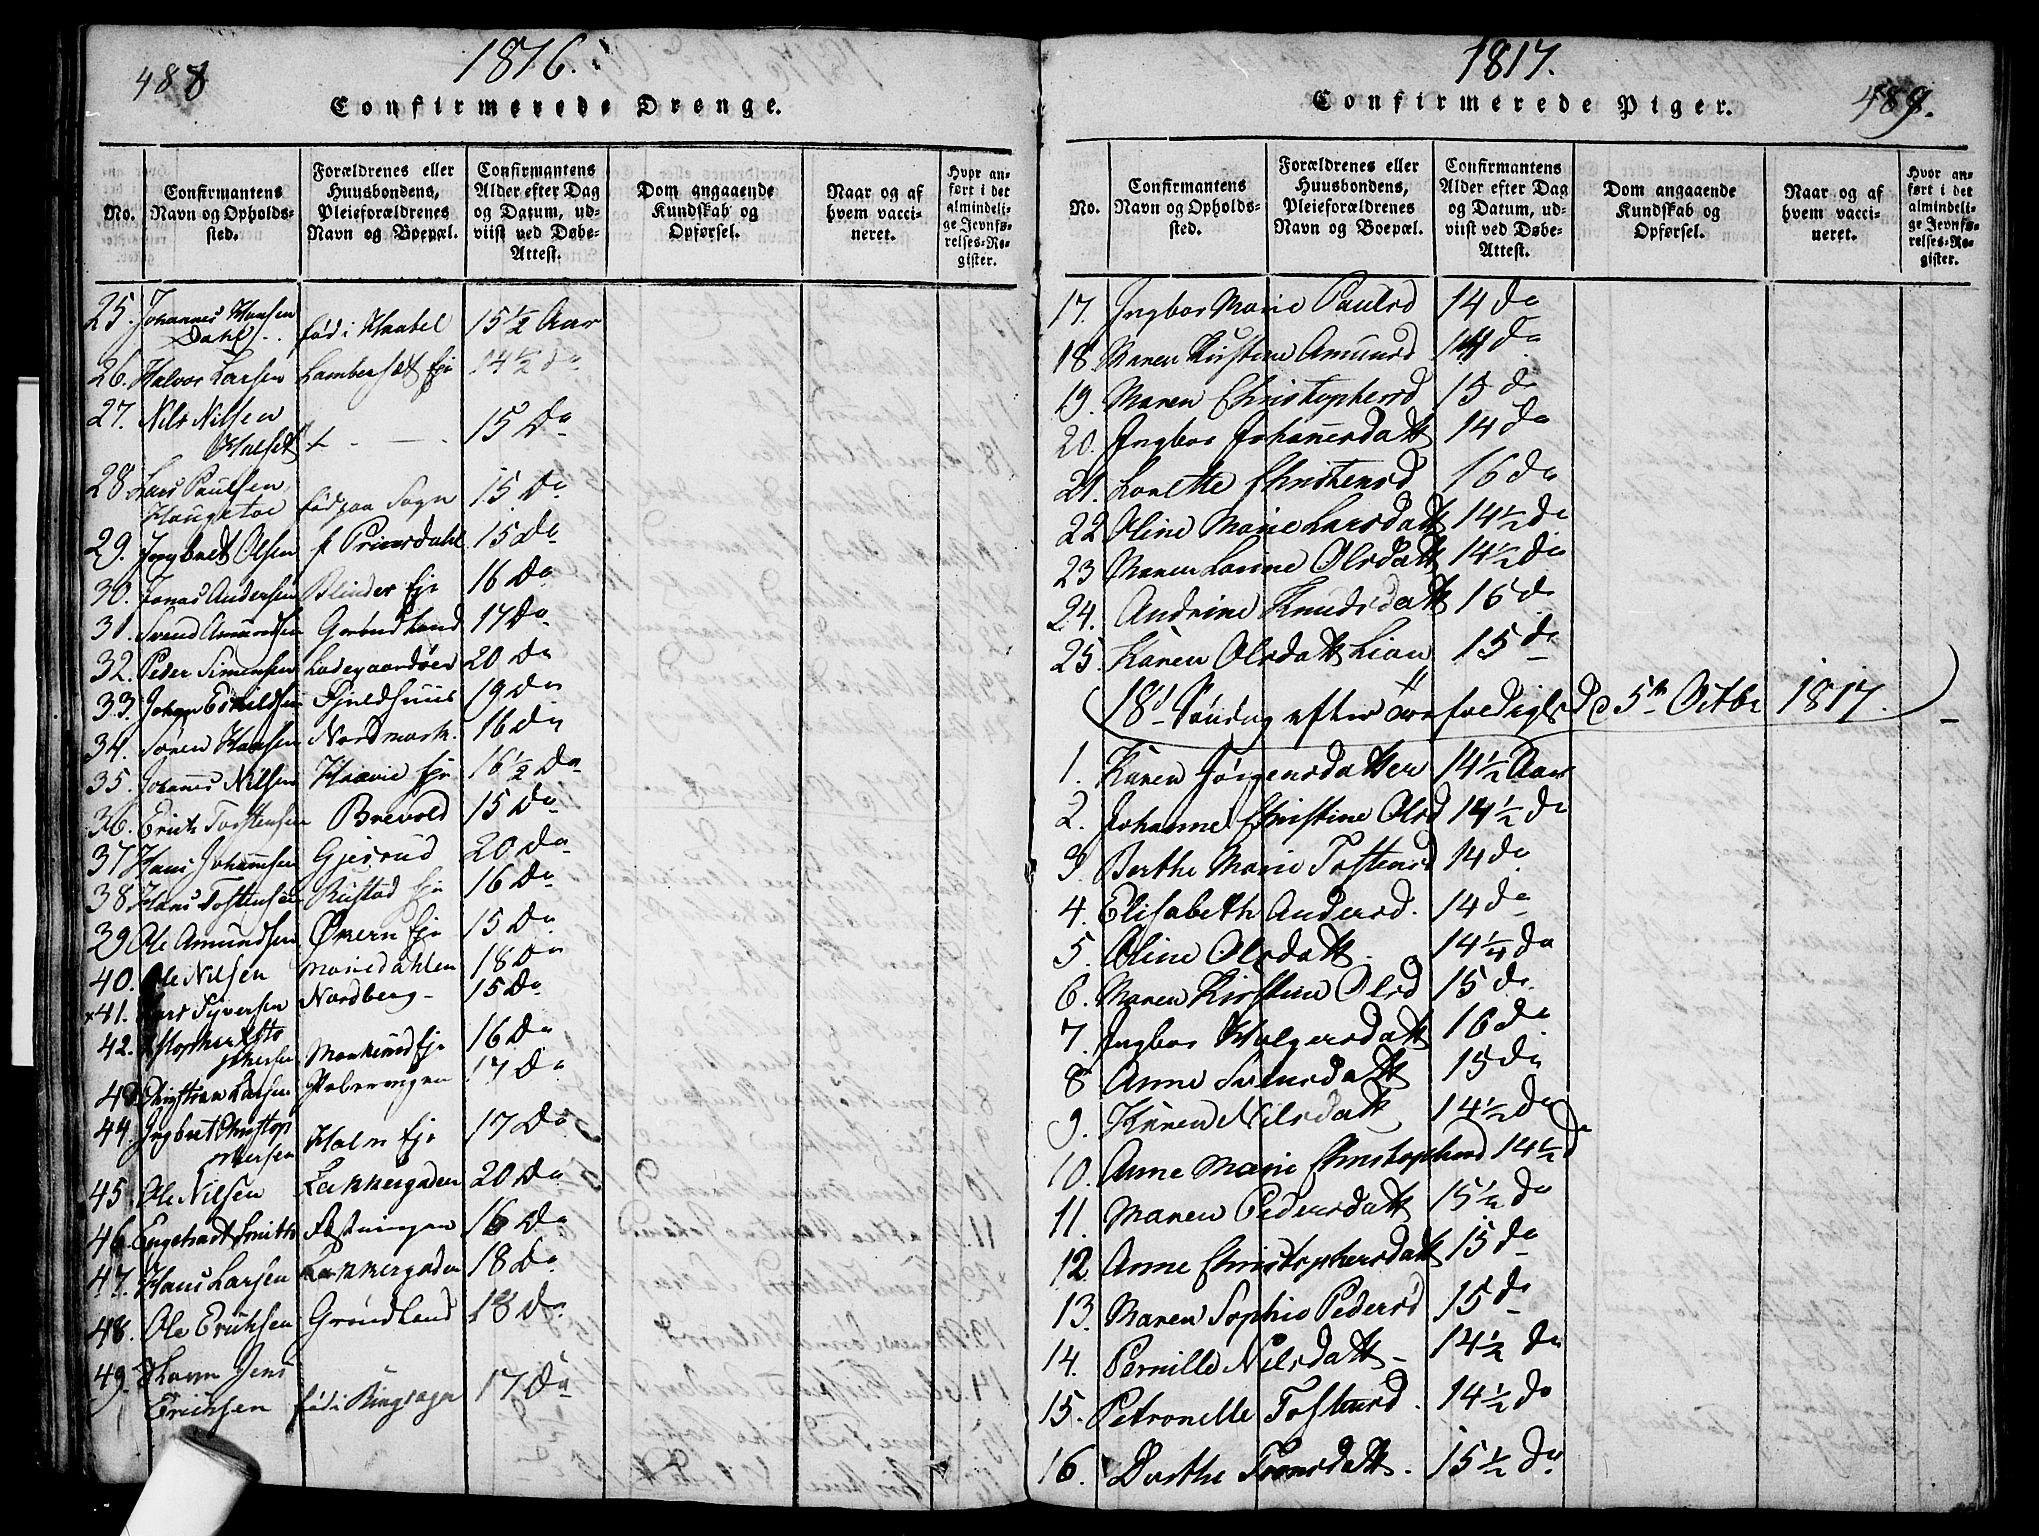 488
1816.
Confirmerede Drenge.
No.
Confirmantens Navn og Opholds-sted.
Forældrenes eller Huusbondens, Pleieforældrenes Navn og Boepæl.
Confirmantens Alder efter Dag og Datum, ud-viist ved Døbe-Attest.
Dom angaaende Kundskab og Opførsel.
Naar og af hvem vacci-neret.
Hvor an-ført i det almindeli-ge Jevnfø-relses-Re-gister.
25. Johannes Hansen
Dahl . . fød i Haabel 15 1/2 Aar
26. Halvor Larsen Lambersæt Eje 14 1/2 do
27. Nils Nilsen
Hulset 15 Do
28 Lars Paulsen
Haugetoe fød paa Sogn 15 Do
29. Ingbret Olsen f Prinsdahl 15 Do
30. Jonas Andersen Blinder Eje 16 Do
31. Svend Amundsen Grønland 17 Do
32. Peder Simensen Ladegaardsøen 20 Do
33. Johan Eskildsen 19 Do
34. Søren Hansen Nordmark. 16 Do
35. Johannes Nilsen Haavie Eje 16 1/2 Do
36. Erich Tostensen Brevold 15 Do
37 Hans Johannsen Gjesrud 20 Do
38 Hans Tostensen Rustad Eje 16 Do
39 Ole Amundsen Økern Eje 15 Do
40. Ole Nilsen Mariedahlen 18 Do
x41. Lars Syversen Nordberg 15 Do
42. 16 Do
43 Christian Larsen 17 Do
44. Ingbret Christop
hersen Holm Eje 17 Do
45. Ole Nilsen Lakkergaden 20 Do
46. Engebrait Smith Fæstningen 16 Do
47. Hans Larsen Lakkergaden 18 Do
48. Ole Erichsen Grønland 18 Do
49. Jens
Erichsen fød i Ringsager 17 Do
1817.
Confirmerede Piger.
489.
No.
Confirmantens Navn og Opholds-sted.
Forældrenes eller Huusbondens, Pleieforældrenes Navn og Boepæl.
Confirmantens Alder efter Dag og Datum, ud-viist ved Døbe-Attest.
Dom angaaende Kundskab og Opførsel.
Naar og af hvem vacci-neret.
Hvor an-ført i det almindeli-ge Jevnfø-relses-Re-gister.
17. Ingbor Marie Paulsd 14 do
18. Maren Kirstine Amunsd 14 do
19. Maren Christophersd 15 do
20. Ingbor Johannesdatt 14 do
21. Lovette Christensd 16 do
22. Oline Marie Larsdatt 14 1/2 do
23 Maren Lovine Olsdatt 14 1/2 do
24. Andrine Knudsdatt 16 do
25. Karen Olsdatt Lian 15 do
18d Søndag efter Trefoldigh. D. 5te Octbr 1817.
1. Karen Jörgensdatter 14 1/2 Aar
2. Johanne Christine Olsd 14 1/2 do
3. Berthe Marie Tostensd 14 do
4. Elisabeth Andersd. 14 do
5. Oline Olsdatt. 14 1/4 do
6. Maren Kirstine Olsd 15 do
7. Ingbor Holgersdatt 16 do
8 Anne Svensdatt 15 do
9. Karen Nilsdatt 14 1/2 do
10. Anne Marie Christophersd 14 1/2 d
11. Maren Pedersdatt 15 1/2 do
12 Anne Christophersdatt 15 do
13. Maren Sophie Pedersd 15 do
14. Pernille Nilsdatt - 14 1/2 do
15. Petronelle Tostensd. 14 1/2 do
16. Dorthe 15 1/2 do